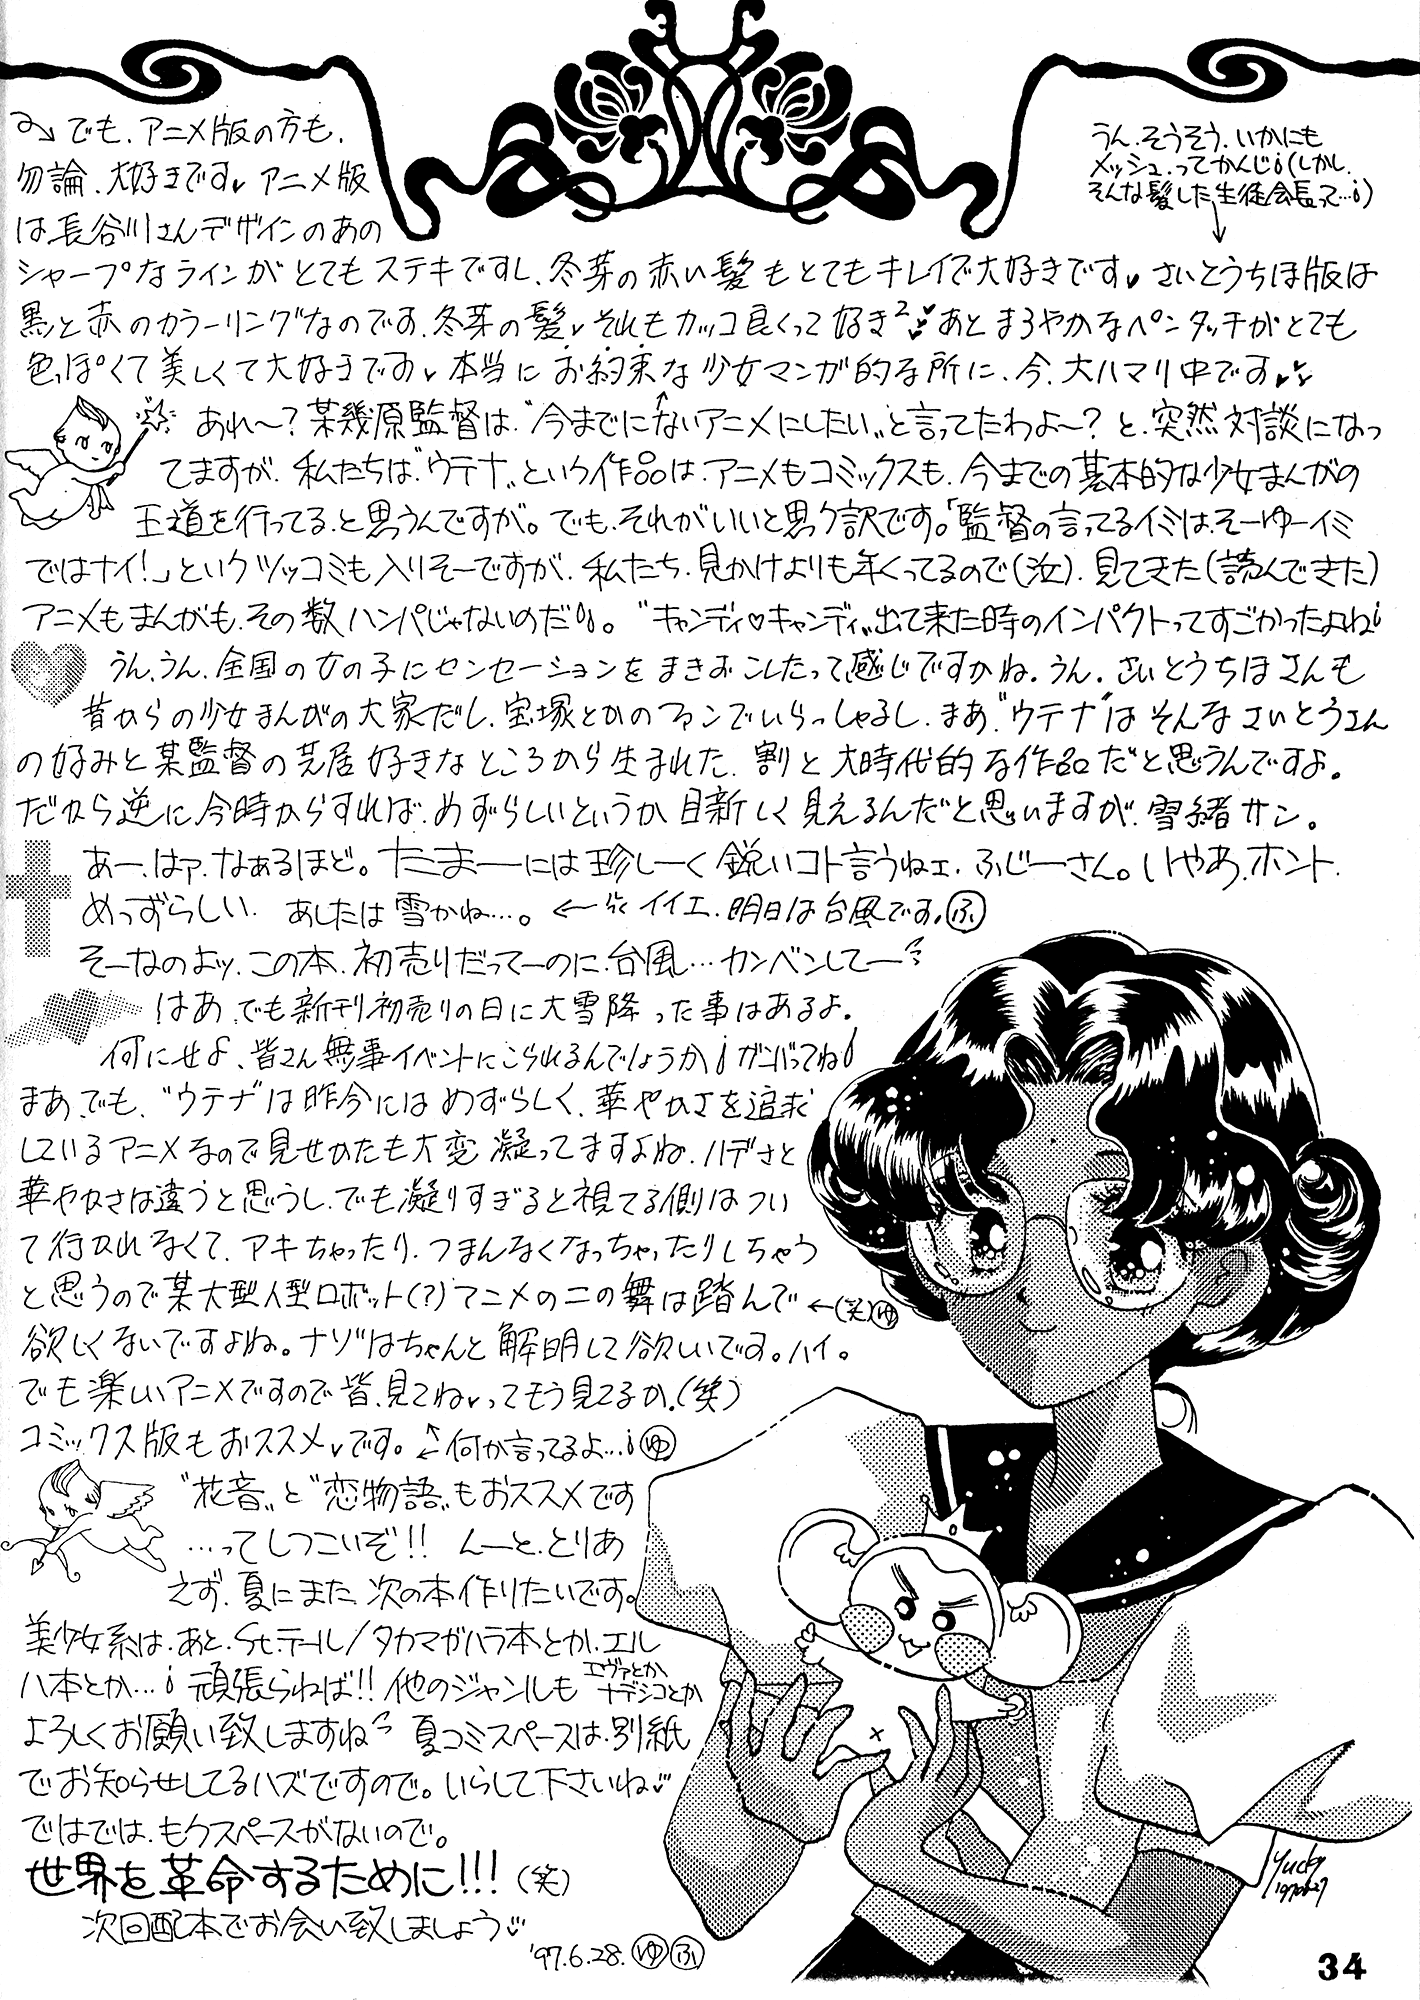 でも、アニメ版の方も、
勿論、大好きです♥ アニメ版
は、長谷川さんデザインのあの
うん、そうそう、いかにも
メッシュ、ってかんじ!(しかし、
そんな髪した生徒会長って…!)
シャープなラインがとてもステキですし、冬芽の赤い髪もとてもキレイで大好きです♥ さいとうちほ版は
黒と赤のカラーリングなのです、冬芽の髪♥ それもカッコ良くって好き²♥ あとまろやかなペンタッチがとても
色っぽくて美しくて大好きです♥ 本当にお約束な少女マンガ的な所に、今、大ハマり中です♥
あれ〜?某幾原監督は、“今までにないアニメにしたい”と言ってたわよ〜?と、突然対談になっ
てますが、私たちは“ウテナ”という作品は、アニメもコミックスも、今までの基本的な少女まんがの
王道を行ってる、と思うんですが。でも、それがいいと思う訳です。「監督の言ってるイミは、そーゆーイミ
ではナイ!」というツッコミも入りそーですが、私たち、見かけよりも年くってるので(泣)、見てきた(読んできた)
アニメもまんがも、その数ハンパじゃないのだ!。“キャンディ♡キャンディ”出て来た時のインパクトってすごかったよね!
うん、うん、全国の女の子にセンセーションをまきおこしたって感じですかね。うん。さいとうちほさんも
昔からの少女まんがの大家だし、宝塚とかのファンでいらっしゃるし、まあ、“ウテナ”はそんなさいとうさん
の好みと某監督の芝居好きなところから生まれた、割と大時代的な作品だと思うんですよ。
だから逆に、今時からすれば、めずらしいというか目新しく見えるんだと思いますが、雪緒サン。
あー、はァ、なぁるほど。たまーには珍しーく鋭いコト言うねェ、ふじーさん。いやあ、ホント、
めっずらしい。あしたは雪かね…。← イイエ、明日は台風です。(ふ)
そーなのよッ、この本、初売りだってーのに、台風…カンベンしてー
はあ、でも新刊初売りの日に大雪降った事はあるよ。
何にせよ、皆さん無事イベントにこられるんでしょうか!ガンバってね!
まあ、でも、“ウテナ”は昨今にはめずらしく、華やかさを追求
しているアニメなので見せかたも大変凝ってますよね、ハデさと
華やかさは違うと思うし、でも凝りすぎると視てる側はつい
て行かれなくて、アキちゃったり、つまんなくなっちゃったりしちゃう
と思うので某大型人型ロボット(?)アニメの二の舞は踏んで ←(笑)(ゆ)
欲しくないですよね。ナゾはちゃんと解明して欲しいです。ハイ。
でも楽しいアニメですので皆、見てね♥ってもう見てるか、(笑)
コミックス版もおススメ♥です。 何か言ってるよ…!(ゆ)
“花音”と“恋物語”もおススメです
…ってしつこいぞ!! んーと、とりあ
えず、夏にまた、次の本作りたいです。
美少女系は、あと、St.テール/タカマガハラ本とか、エル
ハ本とか…! 頑張らねば!! 他のジャンルも エヴァとか
ナデシコとか
よろしくお願い致しますね 夏コミスペースは、別紙
でお知らせしてるハズですので。いらして下さいね♥
ではでは、もうスペースがないので。
世界を革命するために!!!(笑)
次回配本でお会い致しましょう♥
'97.6.28. (ゆ)(ふ)
34